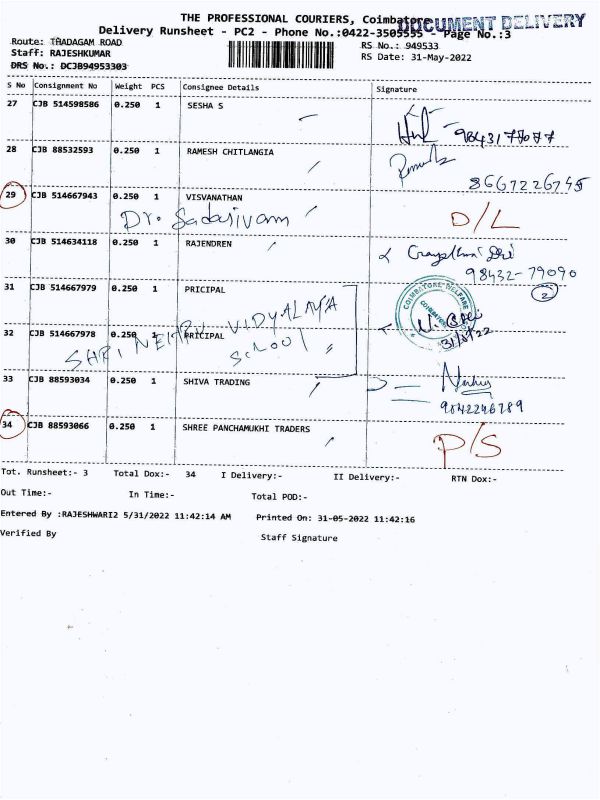 THE PROFESSIONAL COURIERS, Coimbatore
DOCUMENT DELIVERY
Delivery Runsheet - PC2 - Phone No.:0422-3505555 - Page No.:3
Route: THADAGAM ROAD
RS No.: 949533
Staff: RAJESHKUMAR
RS Date: 31-May-2022
DRS No.: DCJB94953303
S No Consignment No Weight PCS Consignee Details Signature
27 CJB 514598586 0.250 1 SESHA S
9843177077
28 CJB 88532593 0.250 1 RAMESH CHITLANGIA
8667226745
29 CJB 514667943 0.250 1 VISVANATHAN
Dr. Sadasivam D/L
30 CJB 514634118 0.250 1 RAJENDREN
98432-79090
31 CJB 514667979 0.250 1 PRICIPAL
2
COIMBATORE WELFARE
32 CJB 514667978 0.250 1 PRICIPAL
SHRI NEHRU VIDYALAYA
SCHOOL
33 CJB 88593034 0.250 1 SHIVA TRADING
9842246789
34 CJB 88593066 0.250 1 SHREE PANCHAMUKHI TRADERS
P/S
Tot. Runsheet:- 3 Total Dox:- 34 I Delivery:- II Delivery:- RTN Dox:-
Out Time:- In Time:- Total POD:-
Entered By :RAJESHWARI2 5/31/2022 11:42:14 AM Printed On: 31-05-2022 11:42:16
Verified By Staff Signature